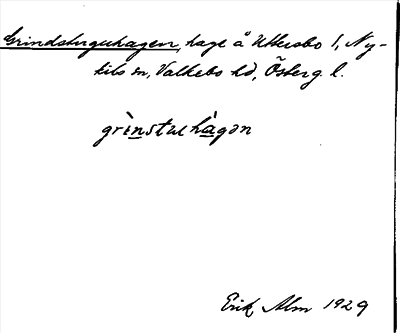 Grindstuguhagen, hage å Uttersbo 1, Ny-
kils sn, Valkebo hd, Österg. l.
grìnstuehàgən
Erik Alm 1929